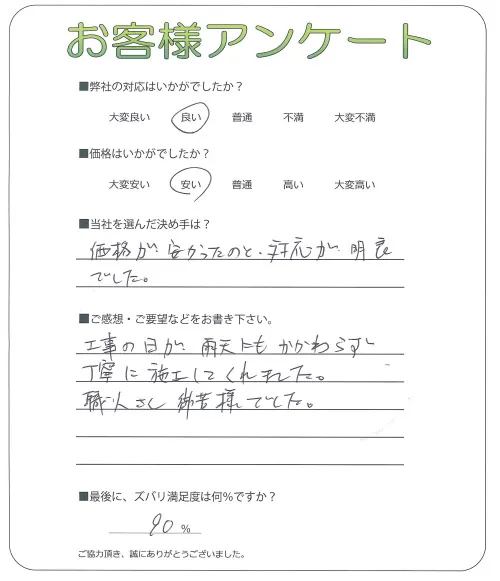 お客様アンケート
■弊社の対応はいかがでしたか？
大変良い 良い 普通 不満 大変不満
■価格はいかがでしたか？
大変安い 安い 普通 高い 大変高い
■当社を選んだ決め手は？
価格が安かったのと、対応が明良
でした。
■ご感想・ご要望などをお書き下さい。
工事の日が雨天にもかかわらず
丁寧に施工してくれました。
職人さん御苦様でした。
■最後に、ズバリ満足度は何%ですか？
90%
ご協力頂き、誠にありがとうございました。